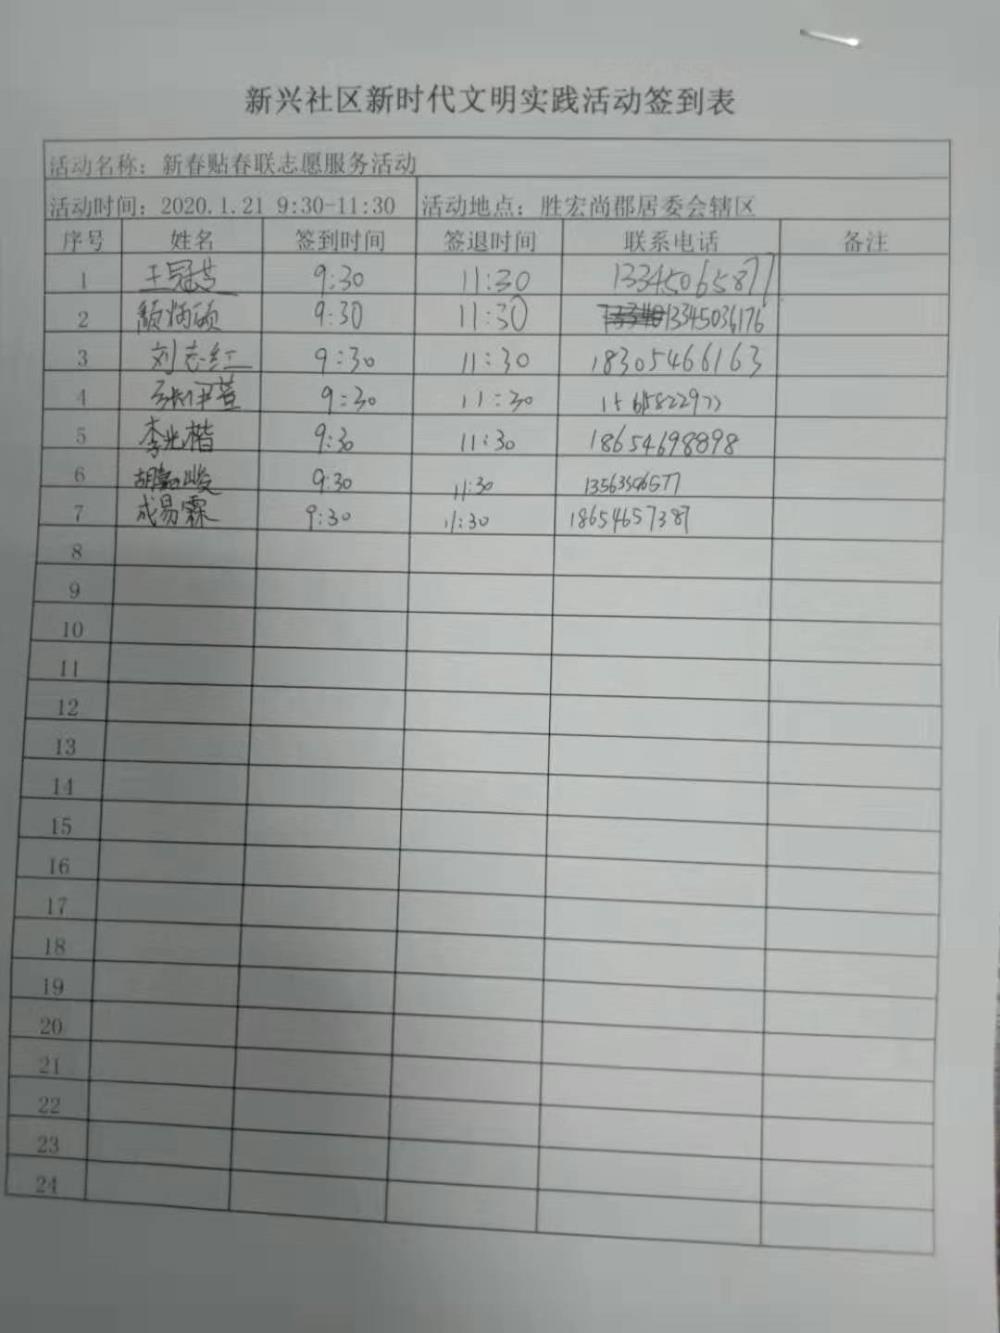 新兴社区新时代文明实践活动签到表
活动名称：新春贴春联志愿服务活动
活动时间：2020.1.21 9:30-11:30 活动地点：胜宏尚郡居委会辖区
序号 姓名 签到时间 签退时间 联系电话 备注
1 王冠芝 9:30 11:30 13345065877
2 颜炳硕 9:30 11:30 13345036176
3 刘志红 9:30 11:30 18305466163
4 张伊萱 9:30 11:30
5 李光楷 9:30 11:30 18654698898
6 9:30 11:30
7 成易霖 9:30 11:30 18654657387
8
9
10
11
12
13
14
15
16
17
18
19
20
21
22
23
24